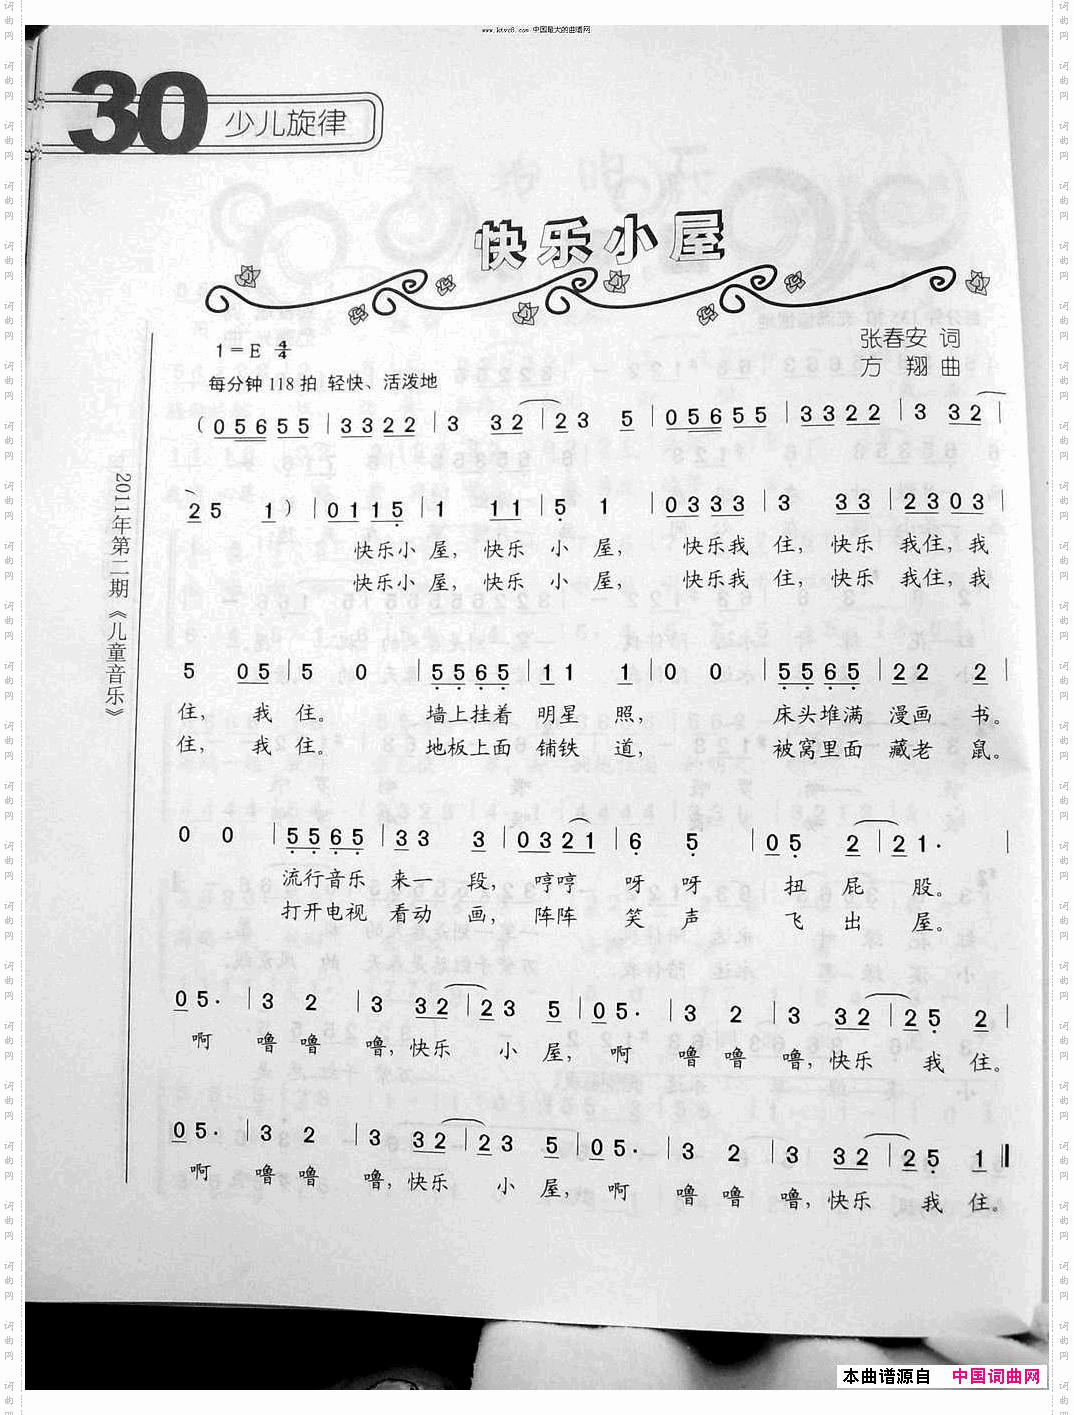 www.ktvc8.com 中国最大的曲谱网
30 少儿旋律
快乐小屋
张春安 词
1=E 4/4
方 翔 曲
每分钟118拍 轻快、活泼地
(05655|3322|3 32|23 5|05655|3322|3 32|
25 1)|0115|1 11|5 1|0333|3 33|2303|
快乐小 屋, 快乐 小 屋, 快乐我 住, 快乐 我住, 我
快乐小 屋, 快乐 小 屋, 快乐我 住, 快乐 我住, 我
5 05|5 0|5565|11 1|0 0|5565|22 2|
住, 我 住。 墙上挂着 明星 照, 床头堆满 漫画 书。
住, 我 住。 地板上面 铺铁 道, 被窝里面 藏老 鼠。
2011年第二期《儿童音乐》
0 0|5565|33 3|0321|6 5|05 2|21·|
流行音乐 来一 段, 哼哼 呀 呀 扭 屁 股。
打开电视 看动 画, 阵阵 笑 声 飞 出 屋。
05·|3 2|3 32|23 5|05·|3 2|3 32|25 2|
啊 噜 噜 噜, 快乐 小 屋, 啊 噜 噜 噜, 快乐 我 住。
05·|3 2|3 32|23 5|05·|3 2|3 32|25 1‖
啊 噜 噜 噜, 快乐 小 屋, 啊 噜 噜 噜, 快乐 我 住。
本曲谱源自 中国词曲网